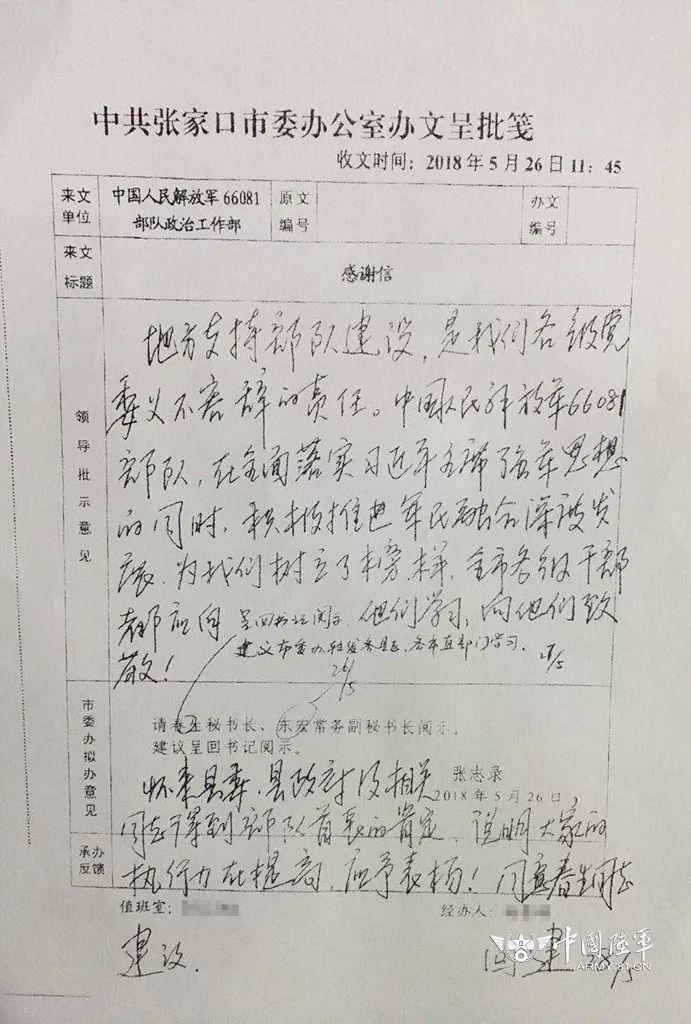 中共张家口市委办公室办文呈批笺
收文时间：2018年5月26日11：45
来文单位
中国人民解放军66081部队政治工作部
原文编号
办文编号
来文标题
感谢信
领导批示意见
地方支持部队建设，是我们各级党
委义不容辞的责任。中国人民解放军66081
部队，在全面落实习近平主席强军思想
的同时，积极推进军民融合深度发
展，为我们树立了榜样，全市各级干部
都应向他们学习，向他们致
敬！
呈回书记阅示。
建议市委办转发各县区、各市直部门学习。
26/5
28/5
市委办拟办意见
请春生秘书长、东宏常务副秘书长阅示。
建议呈回书记阅示。
张志录
2018年5月26日
怀来县委、县政府及相关
同志得到部队首长的肯定，说明大家的
执行力在提高，应予表扬！同意春生同志
建议.
回建 28/5
承办反馈
值班室：
经办人：
中国陆军
ARMY.81.CN